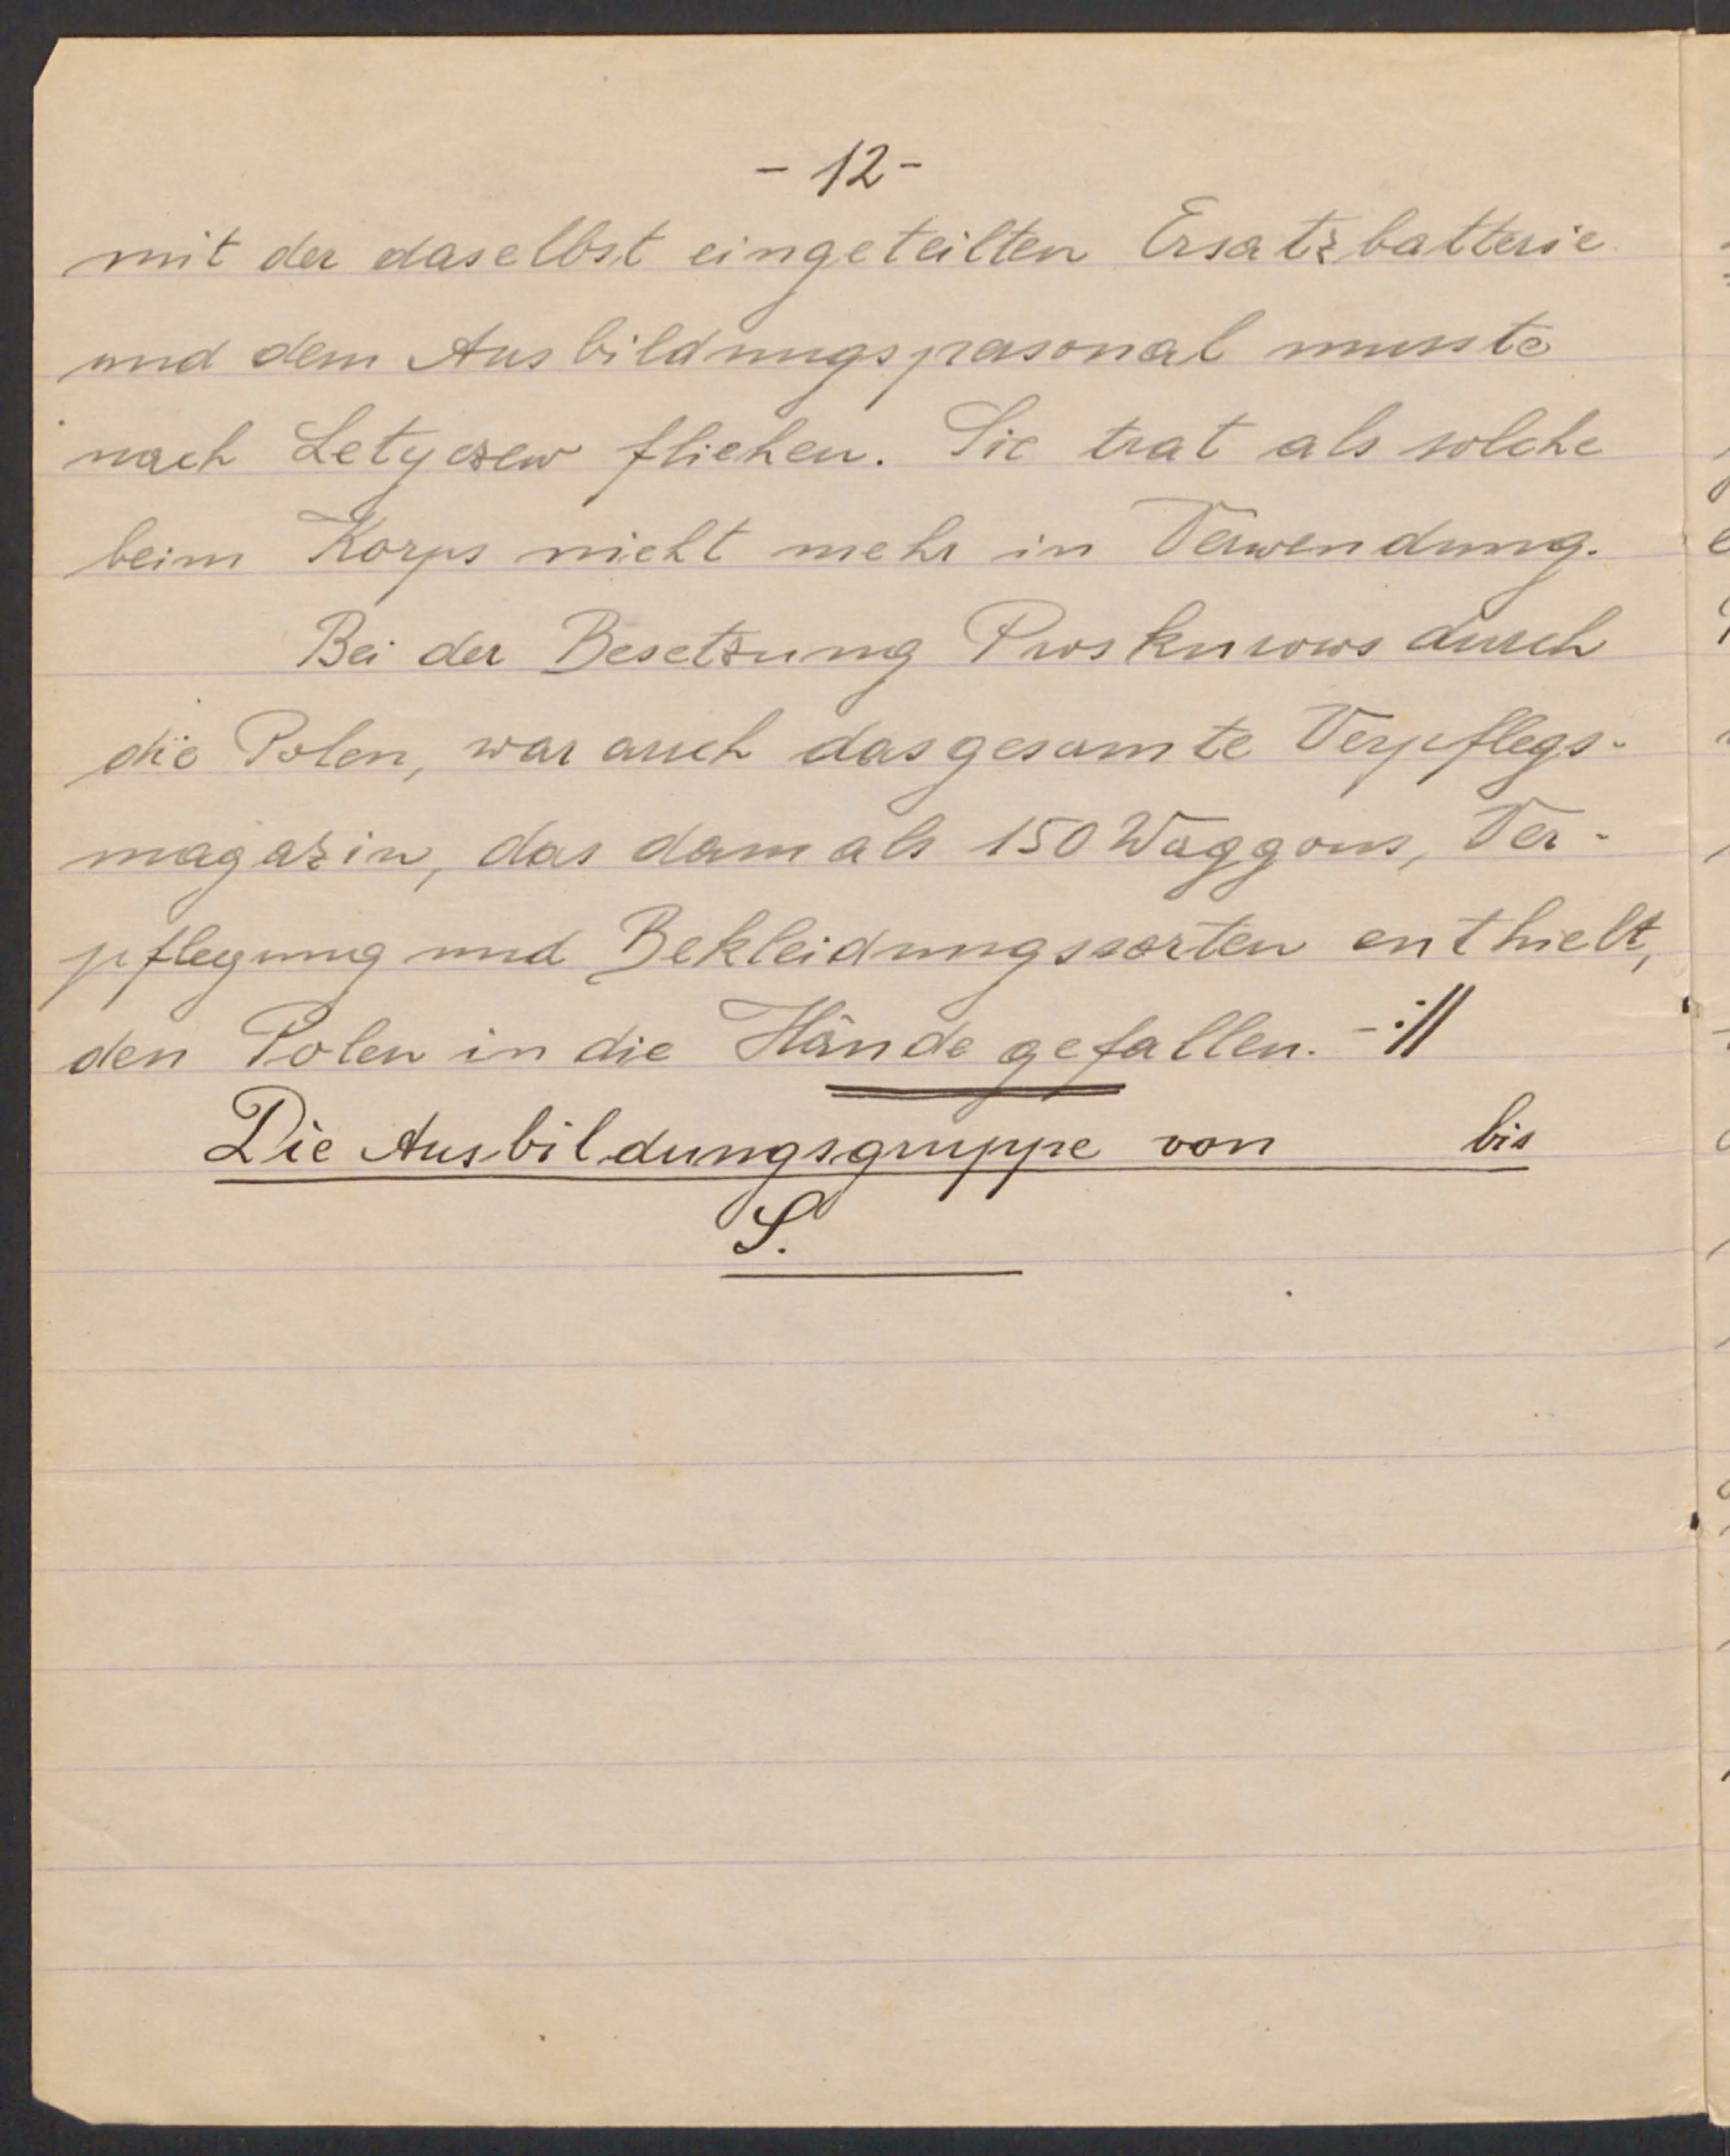 - 12 -
mit der daselbst eingeteilten Ersatzbatterie
und dem Ausbildungspersonal musste
nach Letyczew fliehen. Sie trat als solche
beim Korps nicht mehr in Verwendung.
Bei der Besetzung Proskurows durch
die Polen, war auch das gesamte Verpflegs-
magazin, das damals 150 Waggons, Ver-
pflegung und Bekleidungssorten enthielt,
den Polen in die Hände gefallen. -://
Die Ausbildungsgruppe von bis
S.